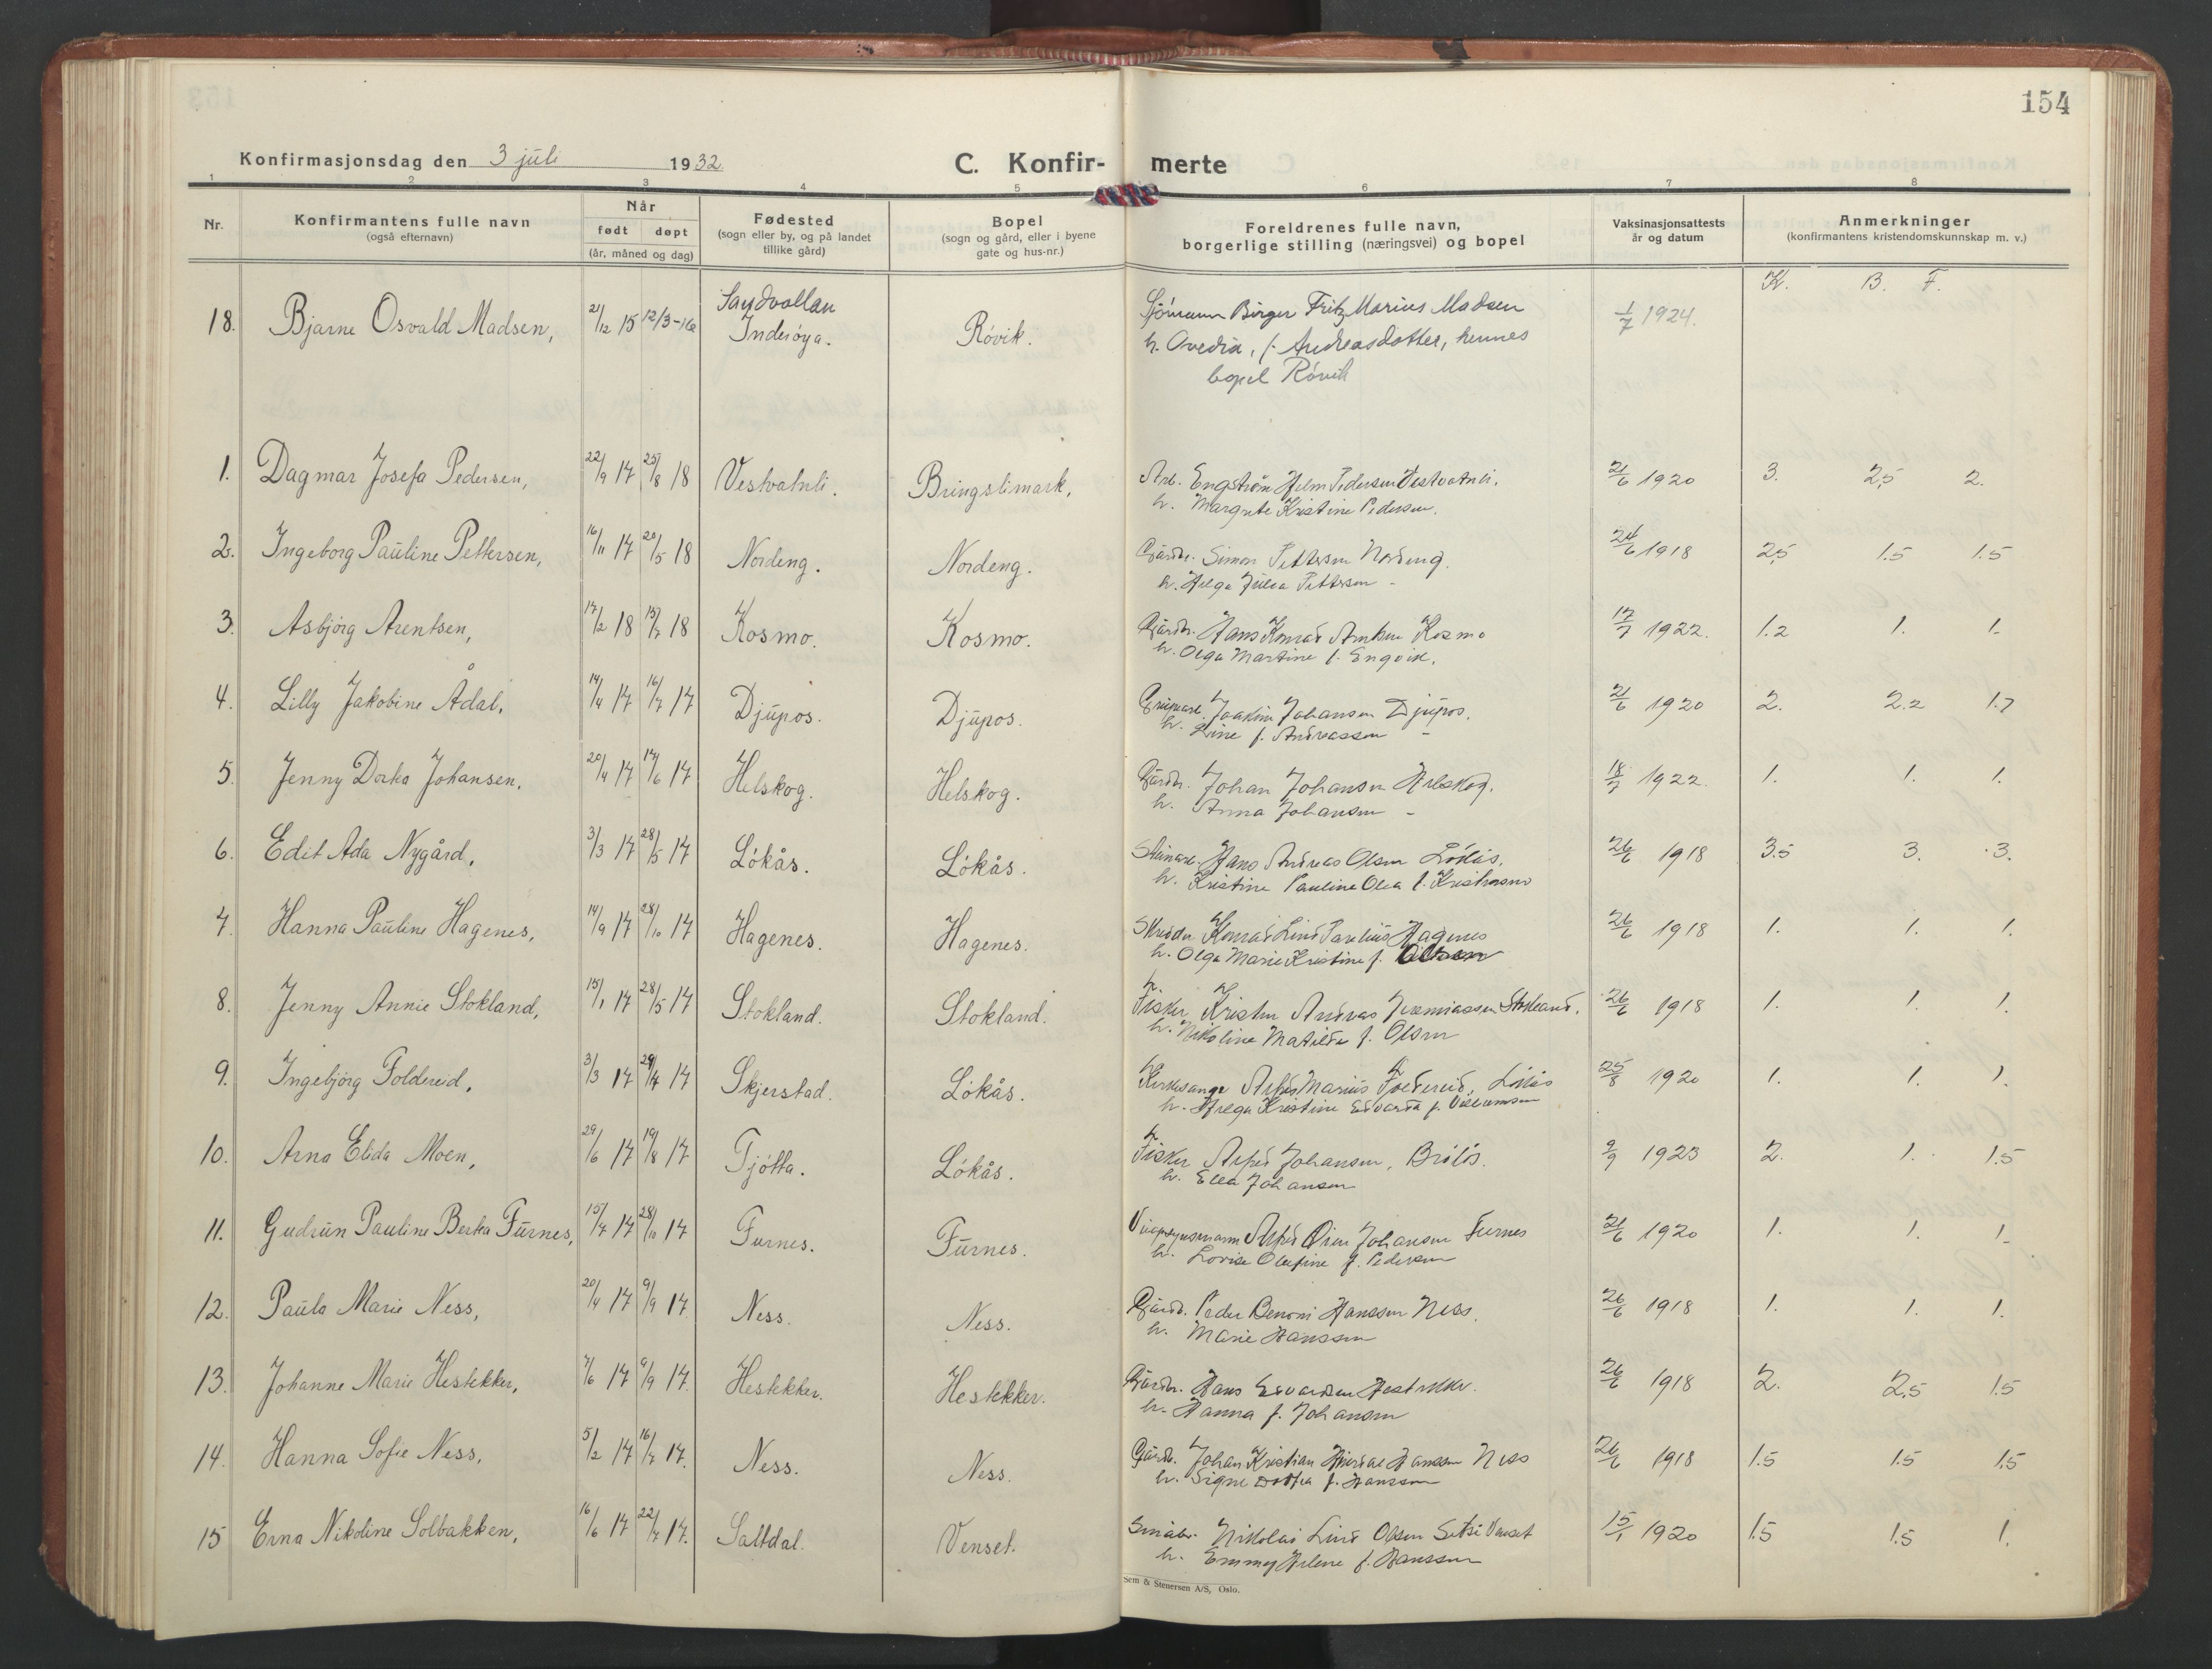 154
Konfirmasjonsdag den 3 juli 1932.
C. Konfir- merte
1 2 3 4 5 6 7 8
Nr.
Konfirmantens fulle navn
(også efternavn)
Når
født døpt
(år, måned og dag)
Fødested
(sogn eller by, og på landet
tillike gård)
Bopel
(sogn og gård, eller i byene
gate og hus-nr.)
Foreldrenes fulle navn,
borgerlige stilling (næringsvei) og bopel
Vaksinasjonsattests
år og datum
Anmerkninger
(konfirmantens kristendomskunnskap m. v.)
K. B. F.
18. Bjarne Osvald Madsen, 21/12 15 12/3-16 Sandvollan Inderøya. Røvik. Sjömann Birger Fritz Marius Madsen 1/7 1924.
h. Ovedia, f. Andreasdotter, hennes
bopel Røvik
1. Dagmar Josefa Pedersen, 22/9 17 25/8 18 Vestvatnli. Bringslimark. Arb. Engström Hilm Pedersen Vestvatnli. 21/6 1920 3. 2,5 2.
h. Margrete Kristine Pedersen.
2. Ingeborg Pauline Pettersen, 16/11 17 20/5 18 Nordeng. Nordeng. Gårdbr. Simon Pettersen Nordeng. 24/6 1918 2,5 1.5 1.5
h. Helga Julia Pettersen -
3. Asbjörg Arentsen, 17/2 18 15/7 18 Kosmo. Kosmo. Gårdbr. Hans Konrad Arntsen Kosmo 17/7 1922. 1.2 1. 1.
h. Olga Martine f. Engvik.
4. Lilly Jakobine Ådal. 14/4 17 16/7 17 Djupos. Djupos. Joakim Johansen Djupos. 21/6 1920 2. 2.2 1.7
h. Line f. Andreassen -
5. Jenny Dorka Johansen. 20/4 17 17/6 17 Helskog. Helskog. Gårdbr. Johan Johansen Helskog. 18/7 1922 1. 1. 1.
h. Anna Johansen -
6. Edit Ada Nygård, 3/3 17 28/5 17 Lökås. Lökås. Hans Andreas Olsen Lökås. 26/6 1918 3.5 3. 3.
h. Kristine Pauline Olea f. Kristensen
7. Hanna Pauline Hagenes, 14/9 17 28/10 17 Hagenes. Hagenes. Skredder Konrad Lind Parelius Hagenes 26/6 1918 1. 1. 1.
h. Olga Marie Kristine f.
8. Jenny Annie Stokland, 15/1 17 28/5 17 Stokland. Stokland. Fisker Kristen Andreas Jeremiassen Stokland. 26/6 1918 1. 1. 1.
h. Nikoline Matilde f. Olsen
9. Ingebjörg Foldereid, 3/3 17 29/4 17 Skjerstad. Lökås. Kirkesanger Alfred Marius Foldereid, Lökås 25/8 1920 1. 1. 1.
h. Helga Kristine Edvarda f. Villumsen
10. Arna Elida Moen, 29/6 17 19/8 17 Tjötta. Lökås. Fisker Alfred Johansen, 9/9 1923 2. 1. 1.5
h. Ella Johansen
11. Gudrun Pauline Berka Furnes, 15/7 17 28/10 17 Furnes. Furnes. Alfred Johansen Furnes 21/6 1920 1. 1. 1.
h. Lovise Olufine f. Pedersen
12. Paula Marie Ness, 20/4 17 9/9 17. Ness. Ness. Gårdb. Peder Benoni Hanssen Ness. 26/6 1918 1. 1. 1.
h. Marie Hanssen
13. Johanne Marie Hestekker, 7/6 17 9/9 17. Hestekker. Hestekker. Gårdbr. Hans Edvardsen Hestekker. 26/6 1918 2. 2,5 1.5
h. Hanna f. Johansen
14. Hanna Sofie Ness. 5/2 17 16/7 17. Ness. Ness. Gårdb. Johan Kristian Hanssen Ness 26/6 1918 1.5 1.5 1.5
h. Signe Dottea f. Hanssen
15 Erna Nikoline Solbakken, 16/6 17 22/7 17. Saltdal. Venset. Småbr. Nikolai Lind Olsen Setsi Venset 15/1 1920 1.5 1.5 1.
h. Emmy Helene f. Hanssen
Sem & Stenersen A/S, Oslo.